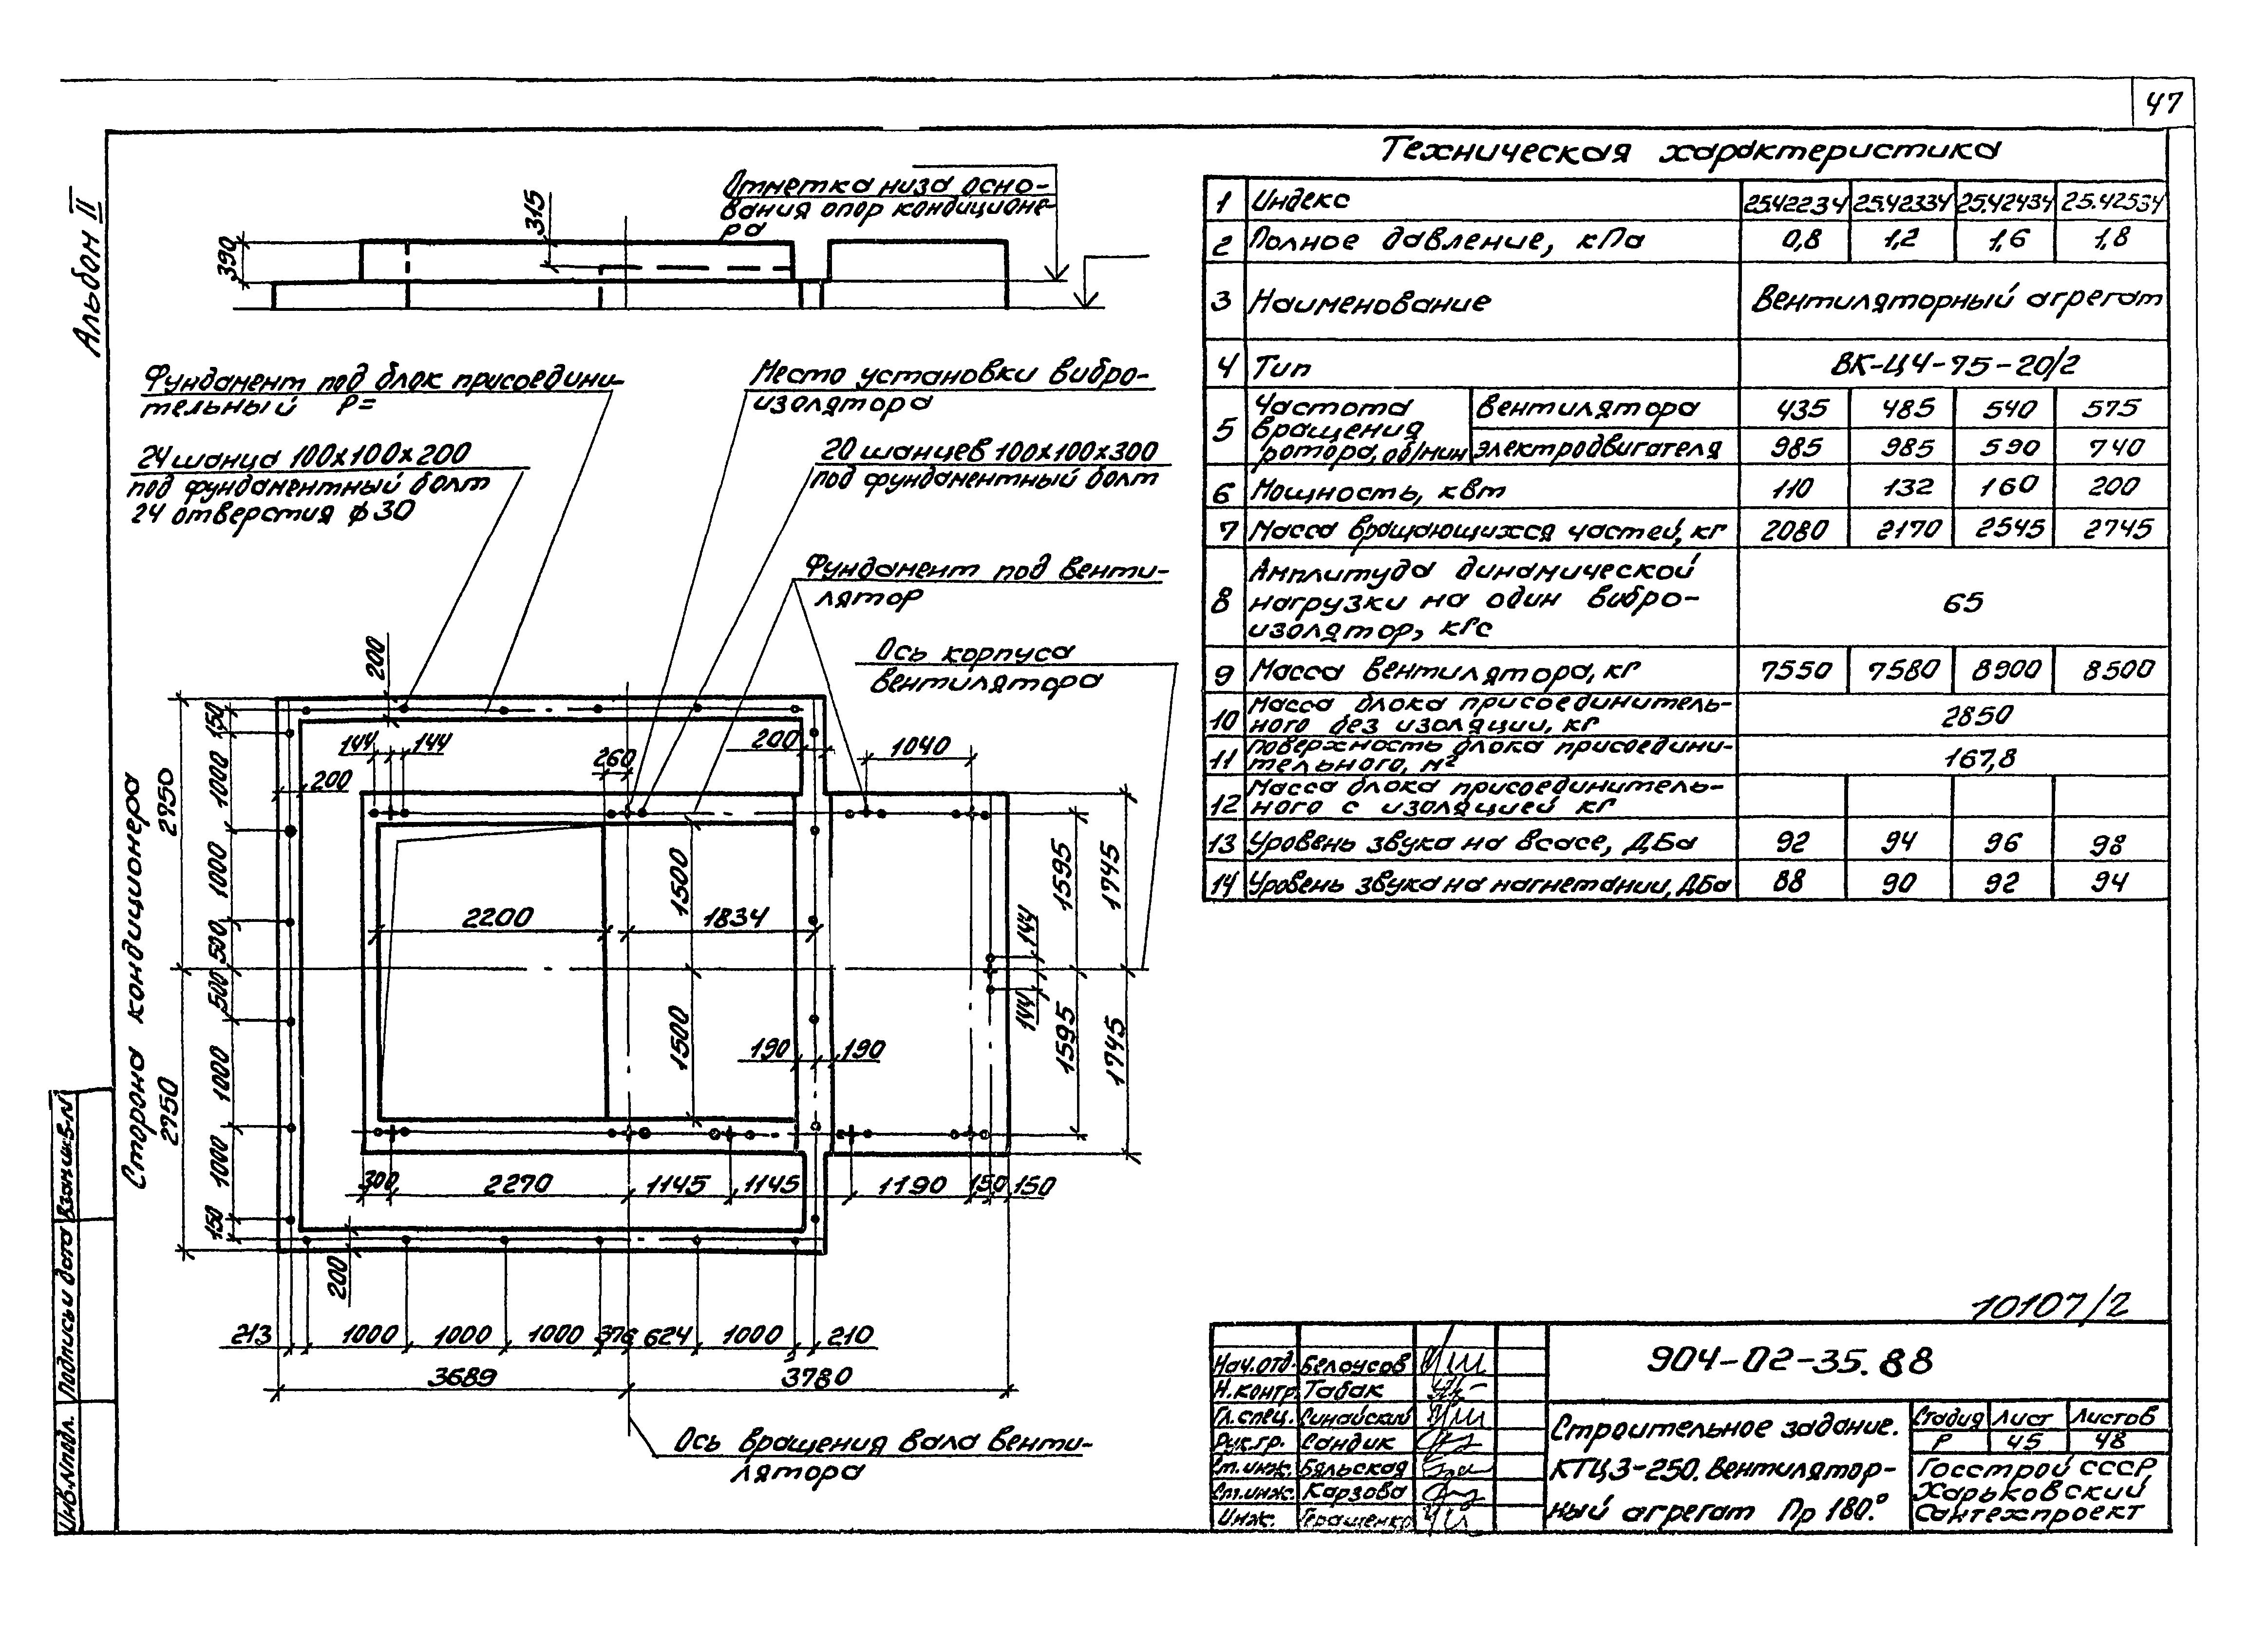 47
Альбон II
390
315
Отметка низа осно-
вания опор кондиционе-
ра
Фундамент под блок присоедини-
тельный P=
24 шанца 100х100х200
под фундаментный болт
24 отверстия ф30
Место установки вибро-
изолятора
20 шанцев 100х100х300
под фундаментный болт
Фундамент под венти-
лятор
Ось корпуса
вентилятора
Сторона кондиционера
2750
2750
150
1000
1000
500
500
1000
1000
150
200
144
144
200
260
200
1040
2200
1834
1500
1500
190
190
144
144
1595
1595
1745
1745
300
2270
1145
1145
1190
150
150
200
213
1000
1000
1000
376
624
1000
210
3689
3780
Ось вращения вала венти-
лятора
Техническая характеристика
1 Индекс 25.42234 25.42334 25.42434 25.42534
2 Полное давление, кПа 0,8 1,2 1,6 1,8
3 Наименование Вентиляторный агрегат
4 Тип ВК-Ц4-75-20/2
5 Частота вентилятора 435 485 540 575
вращения
ротора, об/мин электродвигателя 985 985 590 740
6 Мощность, кВт 110 132 160 200
7 Масса вращающихся частей, кг 2080 2170 2545 2745
Амплитуда динамической
8 нагрузки на один вибро- 65
изолятор, кгс
9 Масса вентилятора, кг 7550 7580 8900 8500
Масса блока присоединитель-
10 ного без изоляции, кг 2850
Поверхность блока присоедини-
11 тельного, м² 167,8
Масса блока присоединитель-
12 ного с изоляцией кг
13 Уровень звука на всасе, ДБа 92 94 96 98
14 Уровень звука на нагнетании, ДБа 88 90 92 94
10107/2
904-02-35.88
Нач.отд. Белоусов
Н.контр. Табак
Гл.спец. Синайский
Рук.гр. Сандик
Ст.инж. Бяльская
Ст.инж. Карзова
Инж. Геращенко
Строительное задание.
КТЦ3-250. Вентилятор-
ный агрегат Пр 180°.
Стадия Лист Листов
Р 45 48
Госстрой СССР
Харьковский
Сантехпроект
Взам.инв.N
Подпись и дата
Инв.N подл.